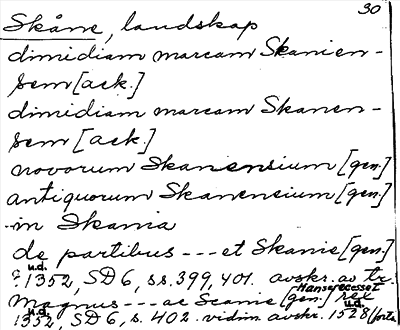 30
Skåne, landskap
dimidiam marcam Skanien-
sem [ack.]
dimidiam marcam Skanen-
sem [ack.]
novorum Skanensium [gen.]
antiquorum Skanensium [gen.]
in Skania
de partibus --- et Skanie [gen.]
u.d.
1352, SD6, ss. 399, 401. avskr. av tr.
Hanserecesset
Magnus --- ac Scanie [gen.] rex
u.d. u.d.
1352, SD6, s. 402. vidim. avskr. 1528